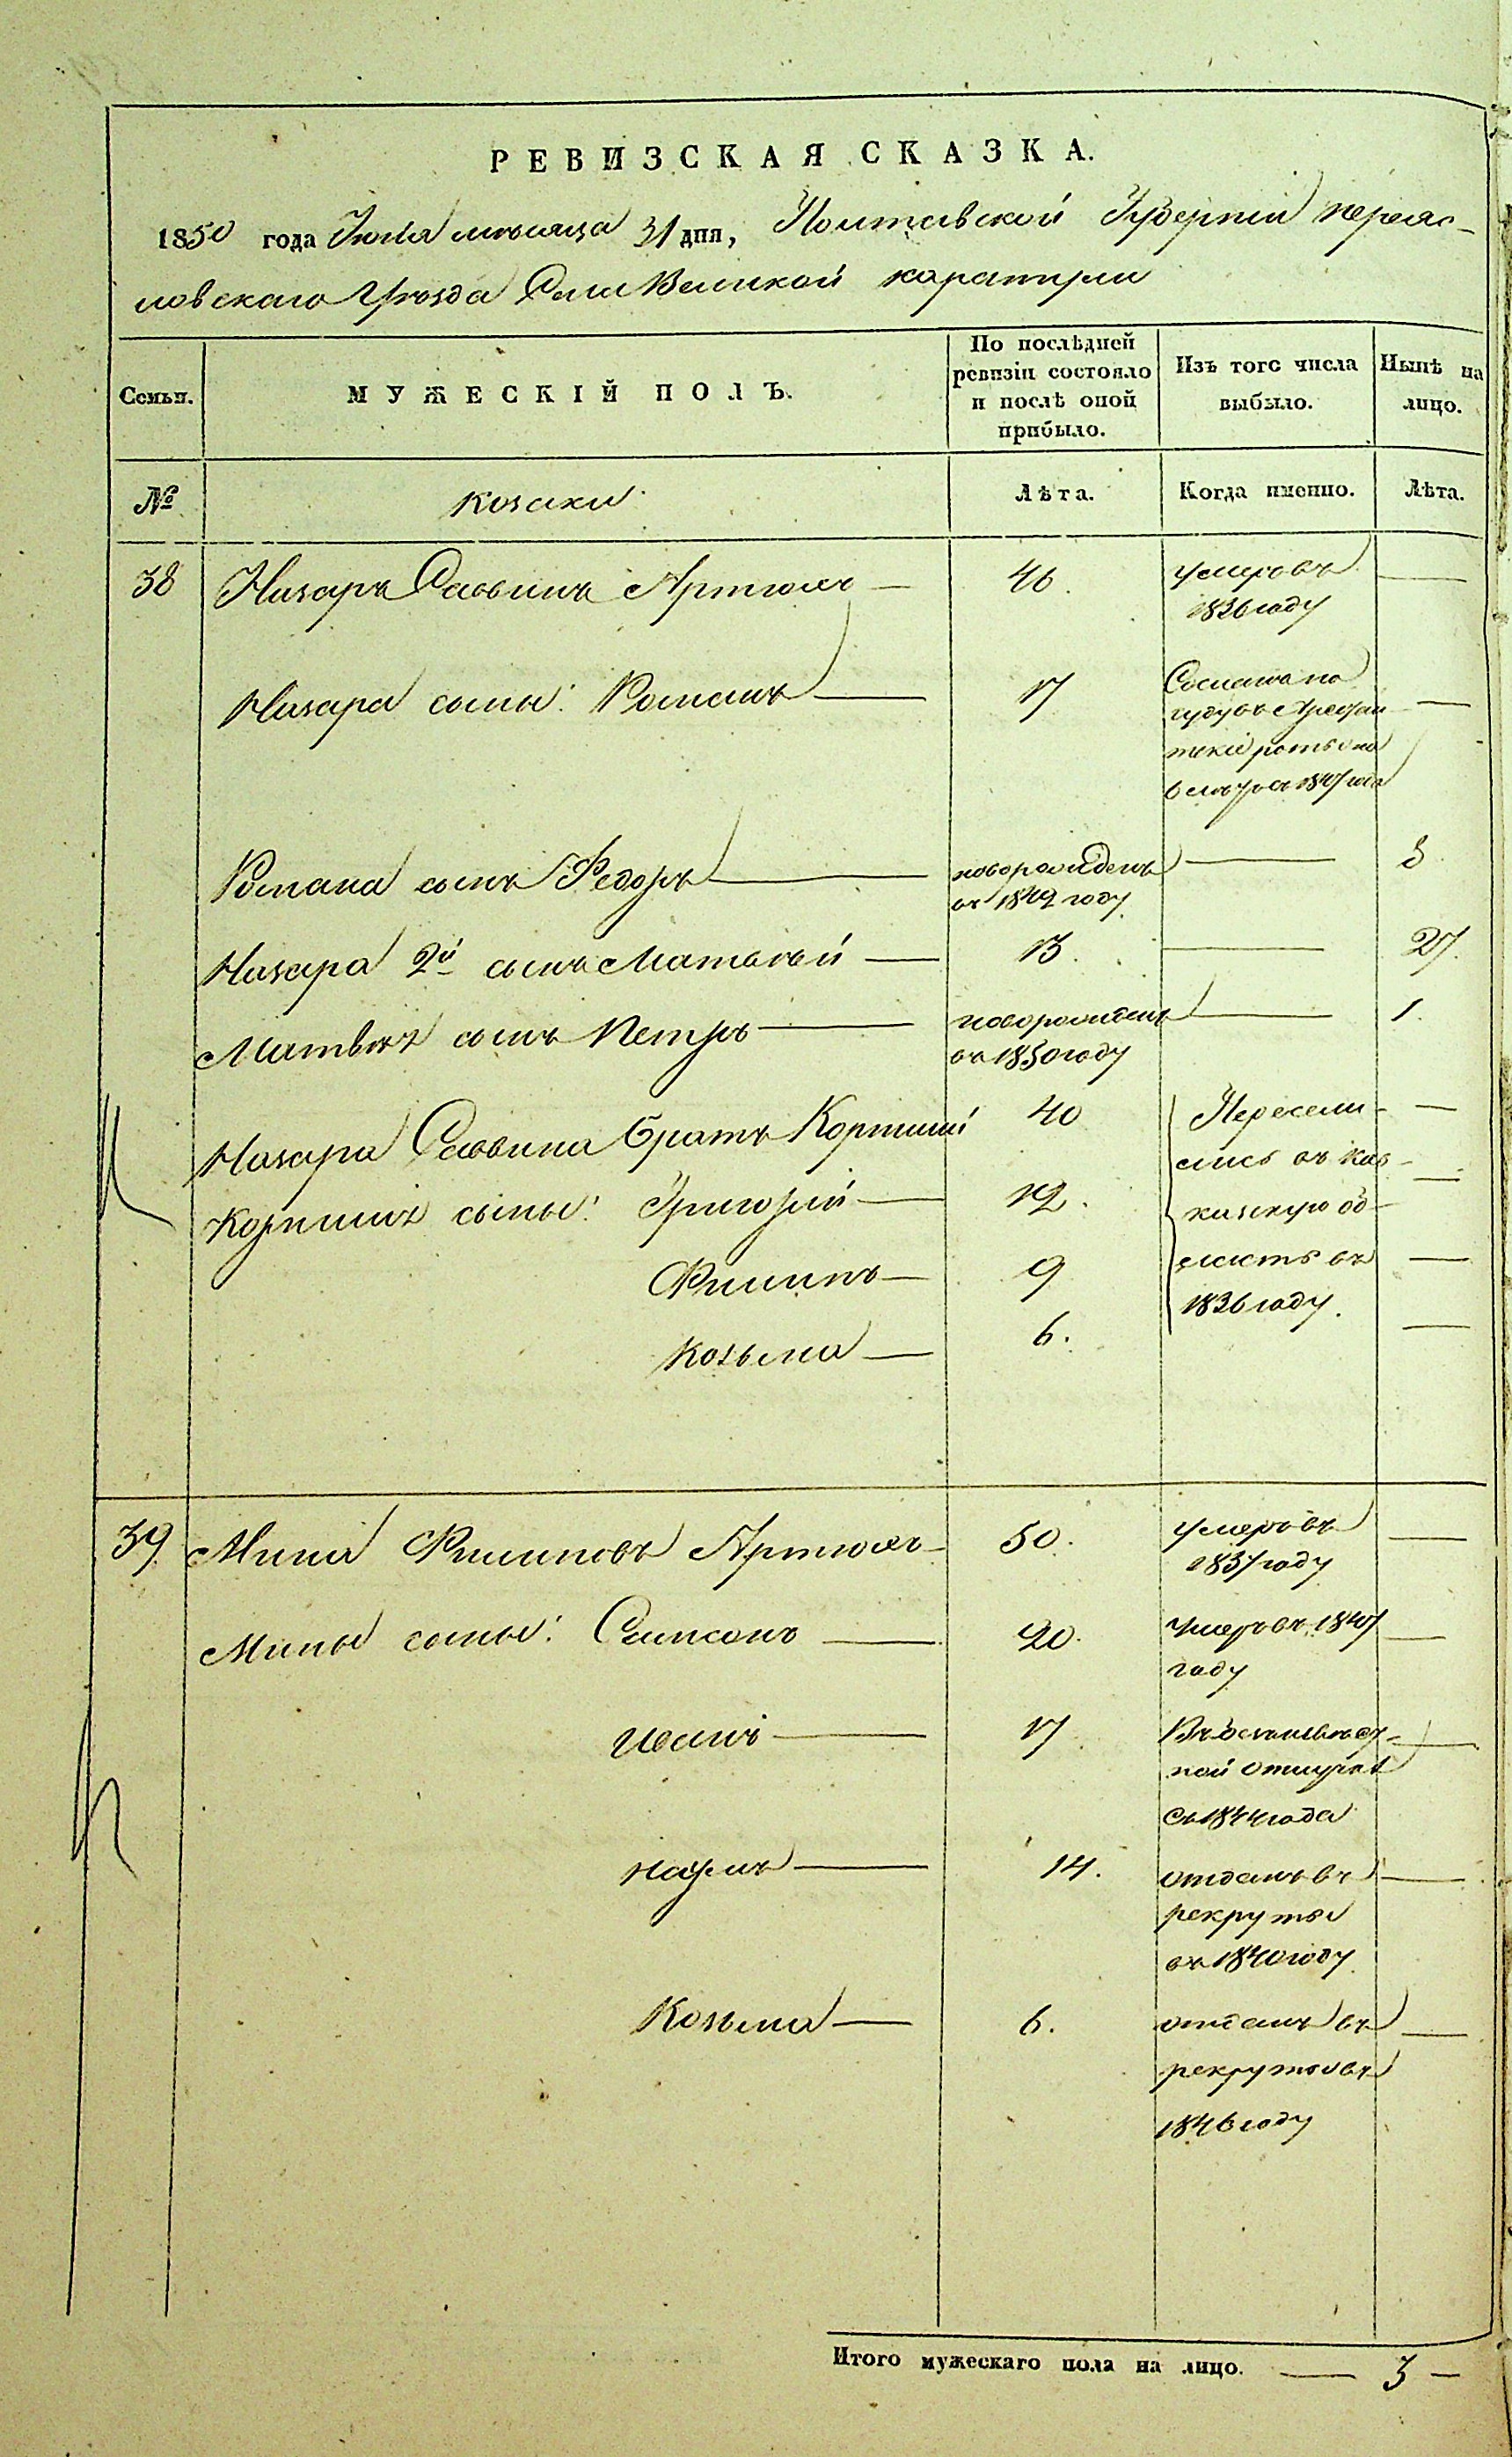 РЕВИЗСКАЯ СКАЗКА.
1850 года Июля месяца 31 дня, Полтавской Губерніи переяс-
ловскаго Уѣзда Села Великой каратули
Семьи.
МУЖЕСКІЙ ПОЛЪ.
По послѣдней ревизіи состояло и послѣ оной прибыло.
Изъ того числа выбыло.
Нынѣ на лицо.
№
козаки
Лѣта.
Когда именно.
Лѣта.
38 Назаръ Саввинъ Артюхъ — 46. умеръ въ —
1836 году
Назара сыны: Романъ — 17 Сосланъ по —
суду въ Арестан
тскія роты
1847 года
Романа сынъ Федоръ — новорожденъ — 3
въ 1849 году
Назара 2й сынъ Матвѣй — 13. — 27.
Матвѣя сынъ Петръ — новорожденъ — 1.
въ 1850 году
Назара Саввина братъ Корнилій 40 Пересели- —
Корнилія сыны: Григорій — 12. лись въ кав- —
казскую об-
Филипъ — 9 ласть въ —
1836 году.
Козьма — 6. —
39 Мина Филиповъ Артюхъ — 50. умеръ въ —
1837 году
Мины сыны: Самсонъ — 20. Умеръ въ 1847 —
году
Иванъ — 17. Въ безызвѣст- —
ной отлучкѣ
Съ 1844 года
Наумъ — 14. отданъ въ —
рекруты
въ 1840 году
Козьма — 6. отданъ въ —
рекруты въ
1846 году
Итого мужескаго пола на лицо. — 3 —